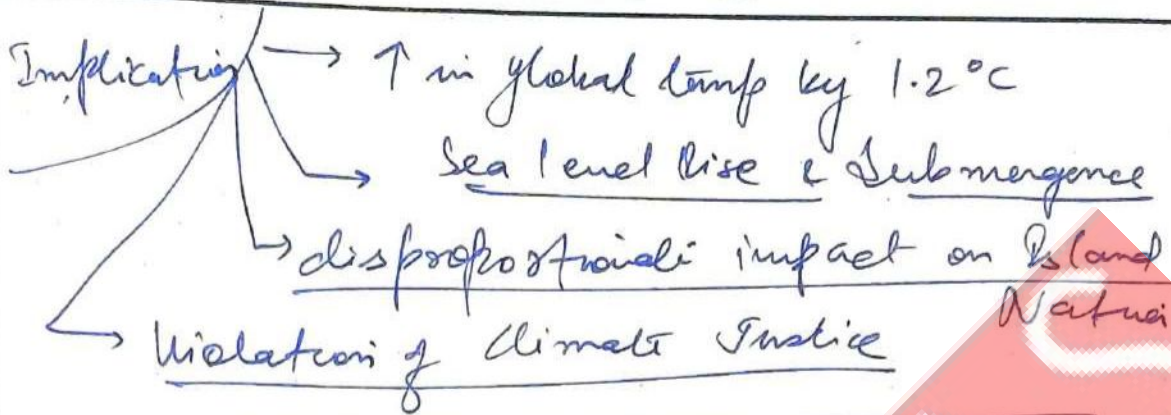 Implication → ↑ in global temp by 1.2°C
→ Sea level Rise & Submergence
→ disproportionate impact on Island
Nation
→ Violation of Climate Justice